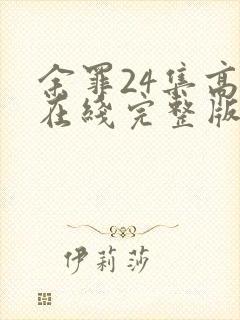 余罪24集高
在线完整版
伊莉莎